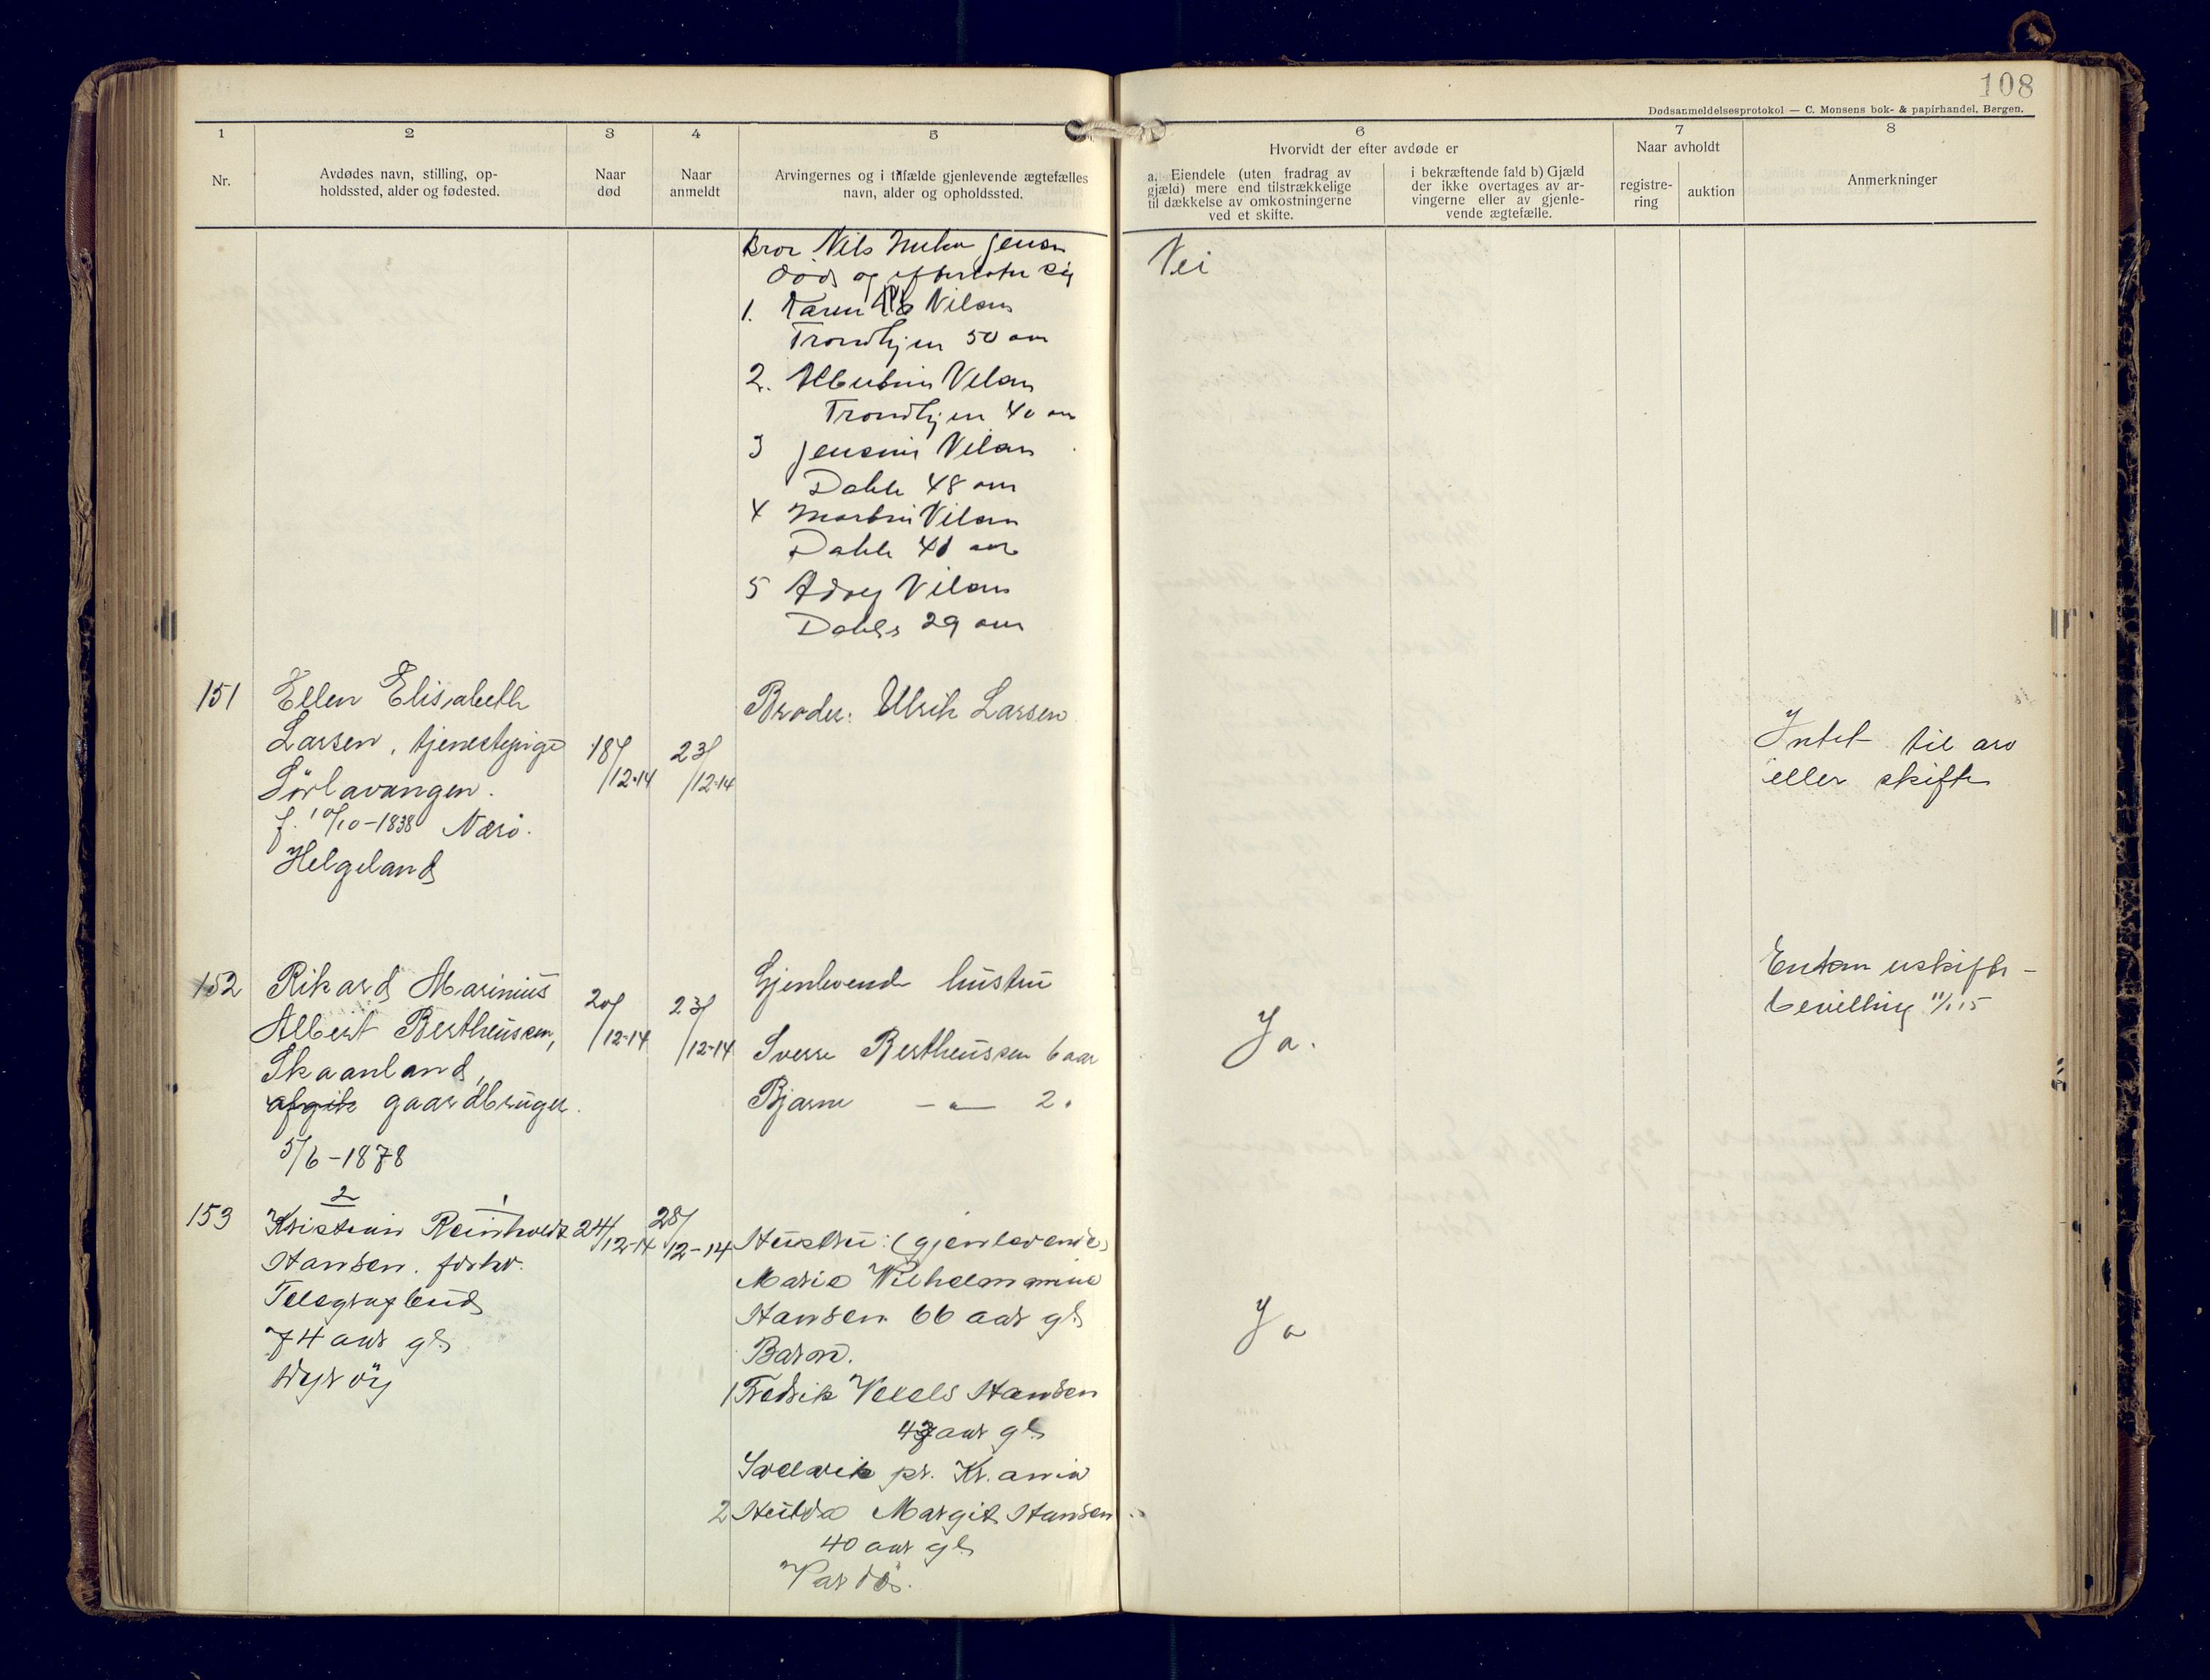 108
Dødsanmeldelsesprotokol — C. Monsens bok- & papirhandel. Bergen.
1
Nr.
2
Avdødes navn, stilling, op-
holdssted, alder og fødested.
3
Naar
død
4
Naar
anmeldt
5
Arvingernes og i tilfælde gjenlevende ægtefælles
navn, alder og opholdssted.
6
Hvorvidt der efter avdøde er
a. Eiendele (uten fradrag av
gjæld) mere end tilstrækkelige
til dækkelse av omkostningerne
ved et skifte.
i bekræftende fald b) Gjæld
der ikke overtages av ar-
vingerne eller av gjenle-
vende ægtefælle.
7
Naar avholdt
registre-
ring
auktion
8
Anmerkninger
Bror Nils Jensen
død og efterlater sig
1. Karen Nilsen
Trondhjem 50 aar
2. Albertine Nilsen
Trondhjem 40 aar
3 Jensine Nilsen
Dahle 48 aar
4 Martin Nilsen
Dahle 41 aar
5 Nilsen
Dahle 29 aar
Nei
151
Ellen Elisabeth
Larsen, tjenestepige
Sörlavangen.
f. 10/10-1838 Nærö.
Helgeland
18/12-14
23/12-14
Broder: Ulrik Larsen
Intet til arv
eller skifte
152
Rikard Marinius
Albert Bertheussen,
Skaanland,
gaardbruger.
5/6-1878
20/12-14
23/12-14
Gjenlevende hustru
Sverre Bertheussen 6 aar
Bjarne —"— 2 "
Ja.
Enken uskifte-
bevilling 11/1 15
153
2 1
Kristian Reinholdt
Hansen. forhv.
Telegrafbud
74 aar gl.
Dyröy
24/12-14
28/12-14
Hustru: (gjenlevende)
Marie Vilhelmmine
Hansen 66 aar gl.
Barn.
1 Fredrik Vexels Hansen
43 aar gl.
Svelvik pr. Kr.ania
2 Hulda Margit Hansen
40 aar gl.
Vardö.
Ja